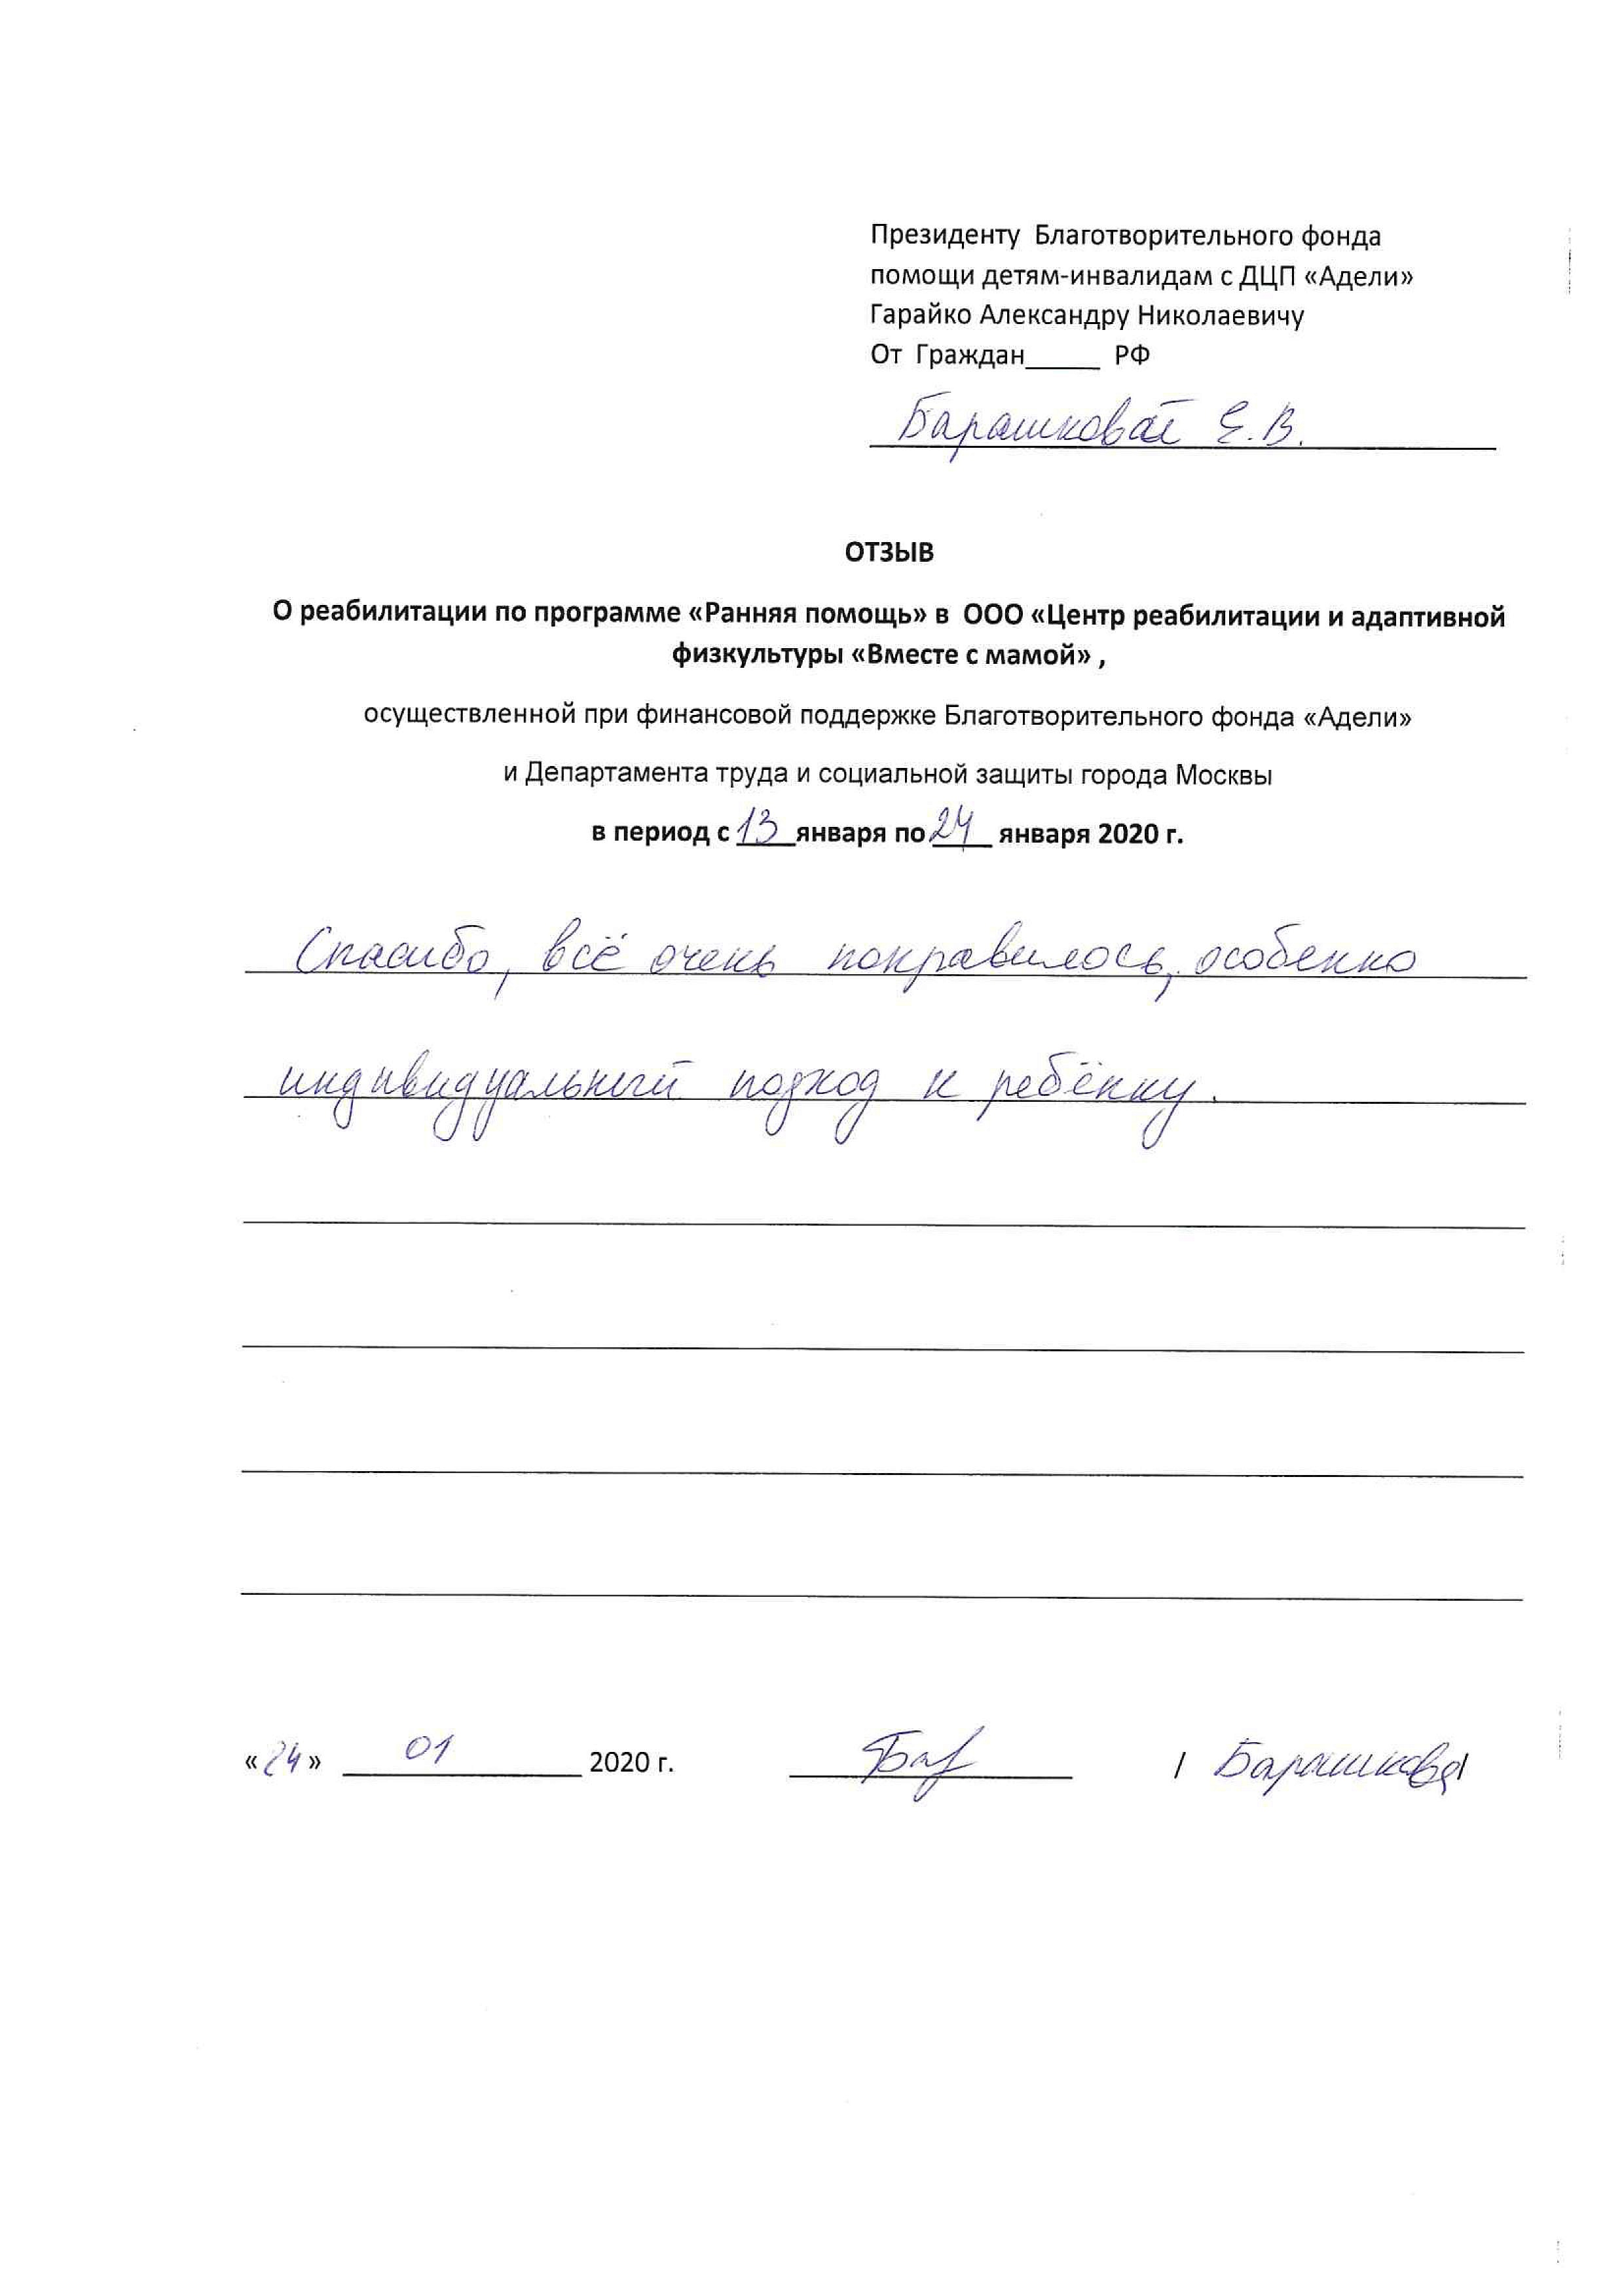 Президенту Благотворительного фонда
помощи детям-инвалидам с ДЦП «Адели»
Гарайко Александру Николаевичу
От Граждан_____ РФ
Барашковой Е.В.
ОТЗЫВ
О реабилитации по программе «Ранняя помощь» в ООО «Центр реабилитации и адаптивной
физкультуры «Вместе с мамой» ,
осуществленной при финансовой поддержке Благотворительного фонда «Адели»
и Департамента труда и социальной защиты города Москвы
в период с 13 января по 24 января 2020 г.
Спасибо, всё очень понравилось, особенно
индивидуальный подход к ребёнку.
«24» 01 2020 г. Бар / Барашкова/